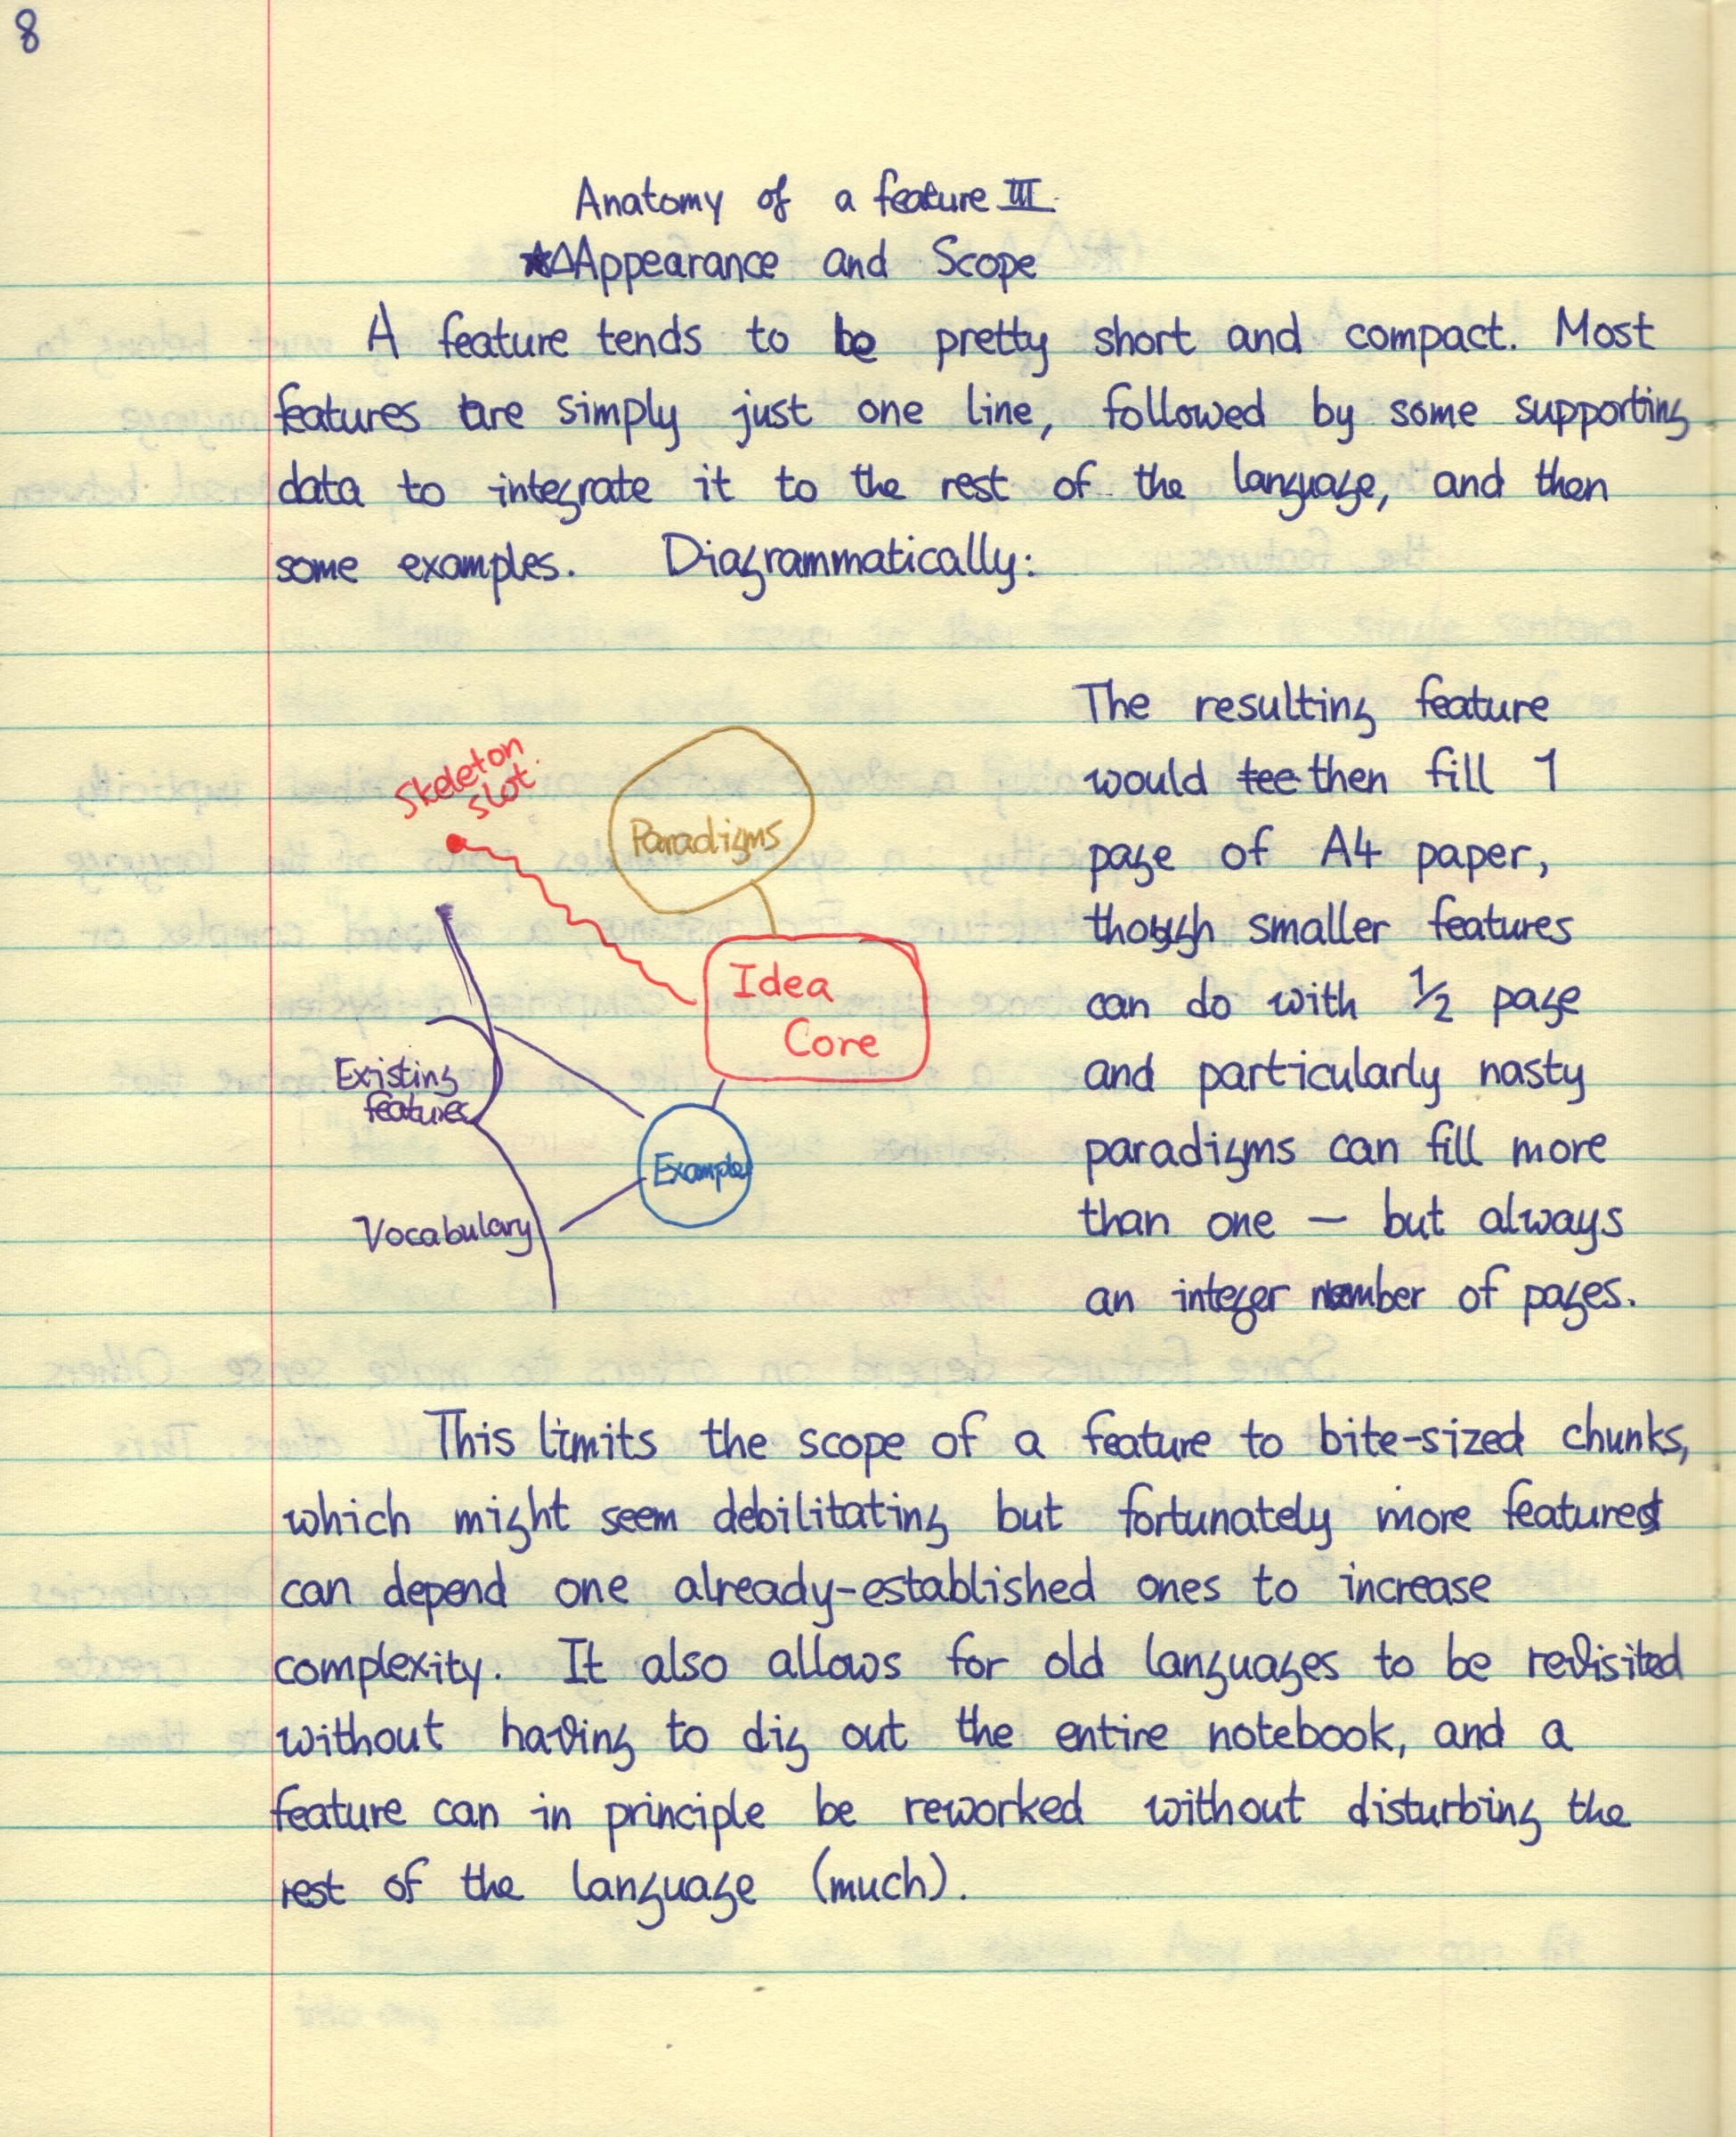 8
Anatomy of a feature III
★△Appearance and Scope
A feature tends to be pretty short and compact. Most
features are simply just one line, followed by some supporting
data to integrate it to the rest of the language, and then
some examples. Diagrammatically:
Skeleton
slot
Paradigms
Idea
Core
Existing
features
Example
Vocabulary
The resulting feature
would tee then fill 1
page of A4 paper,
though smaller features
can do with 1/2 page
and particularly nasty
paradigms can fill more
than one — but always
an integer number of pages.
This limits the scope of a feature to bite-sized chunks,
which might seem debilitating but fortunately more features
can depend one already-established ones to increase
complexity. It also allows for old languages to be revisited
without having to dig out the entire notebook, and a
feature can in principle be reworked without disturbing the
rest of the language (much).